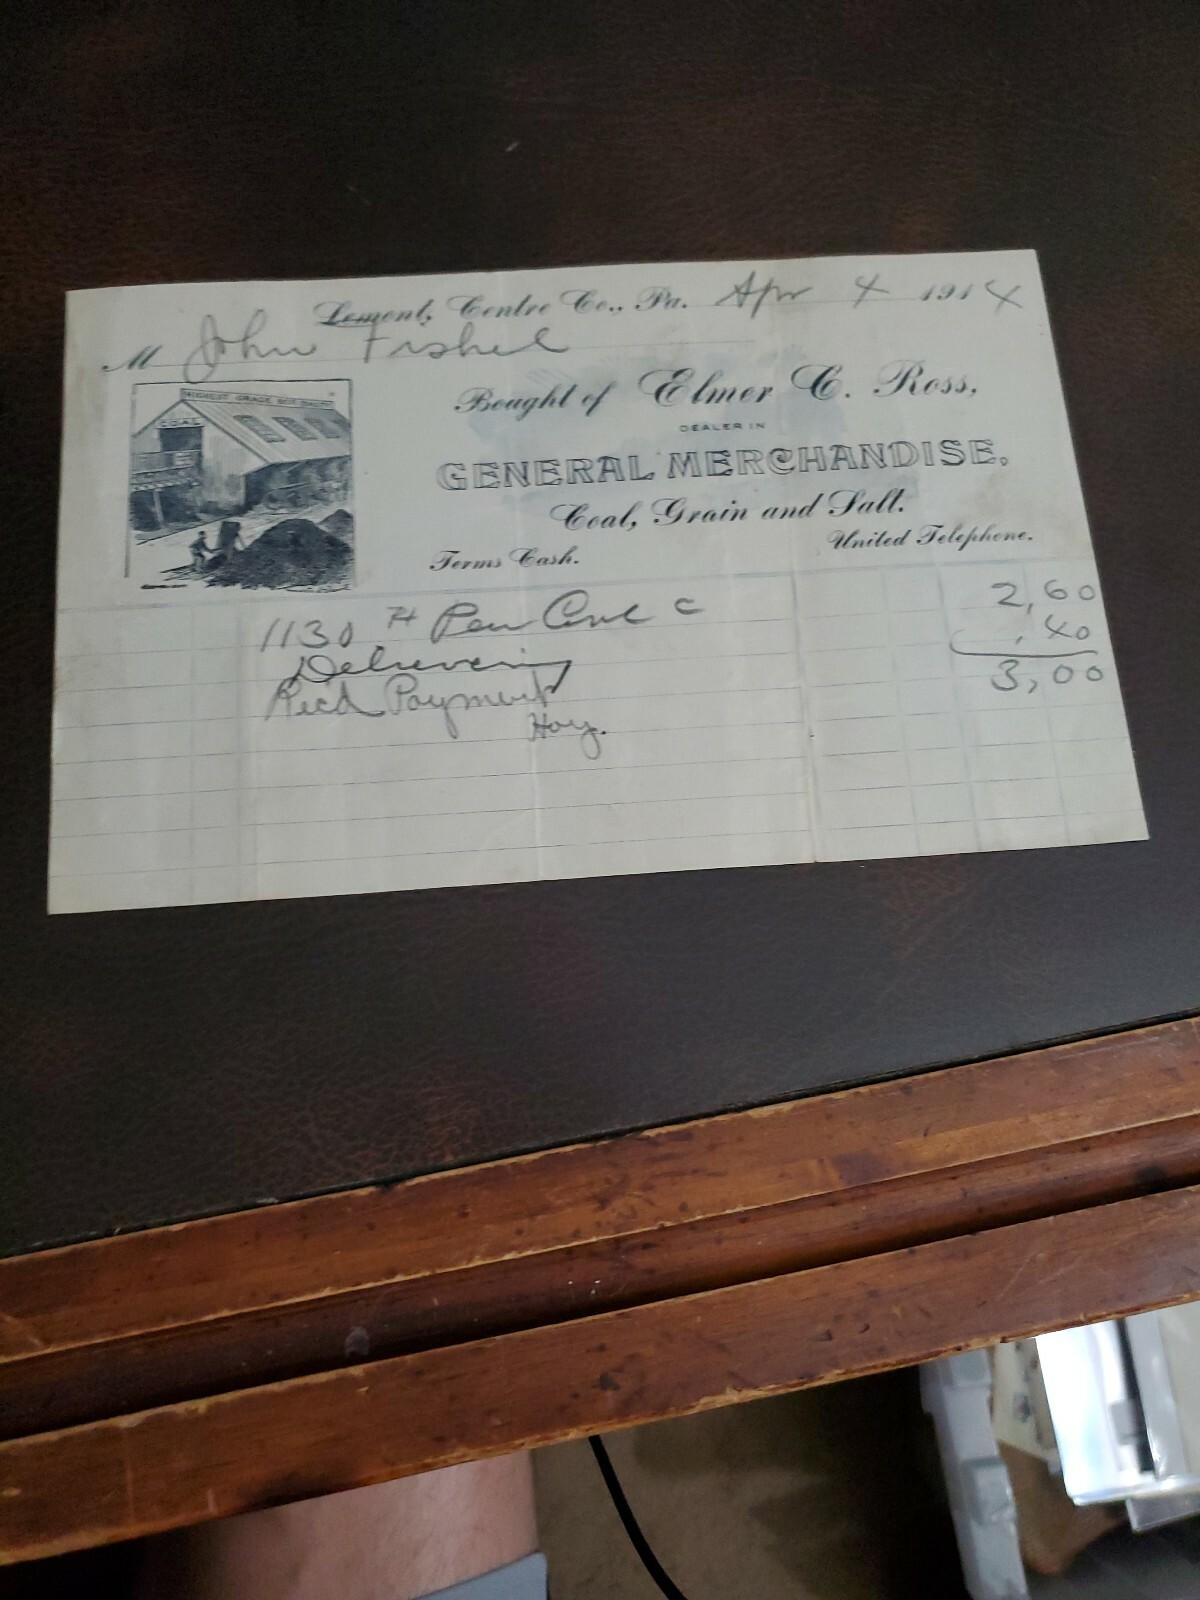 Lemont, Centre Co., Pa. Apr 4 1914
M John Fishel
HIGHEST GRADE
COAL
Bought of Elmer C. Ross,
DEALER IN
GENERAL MERCHANDISE,
Coal, Grain and Salt.
Terms Cash. United Telephone.
1130 # Pea Coal 2,60
Delivering ,40
Recd Payment 3,00
Hoy.